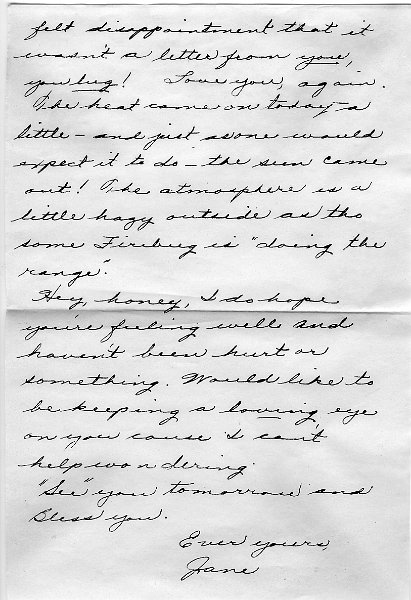 felt disappointment that it
wasn't a letter from you,
you bug! Love you, again.
The heat came on today - a
little - and just as one would
expect it to do - the sun came
out! The atmosphere is a
little hazy outside as tho
some Firebug is "doing the
range".
Hey, honey, I do hope
you're feeling well and
haven't been hurt or
something. Would like to
be keeping a loving eye
on you cause I can't
help wondering.
"See" you tomorrow and
Bless you.
Ever yours,
Jane